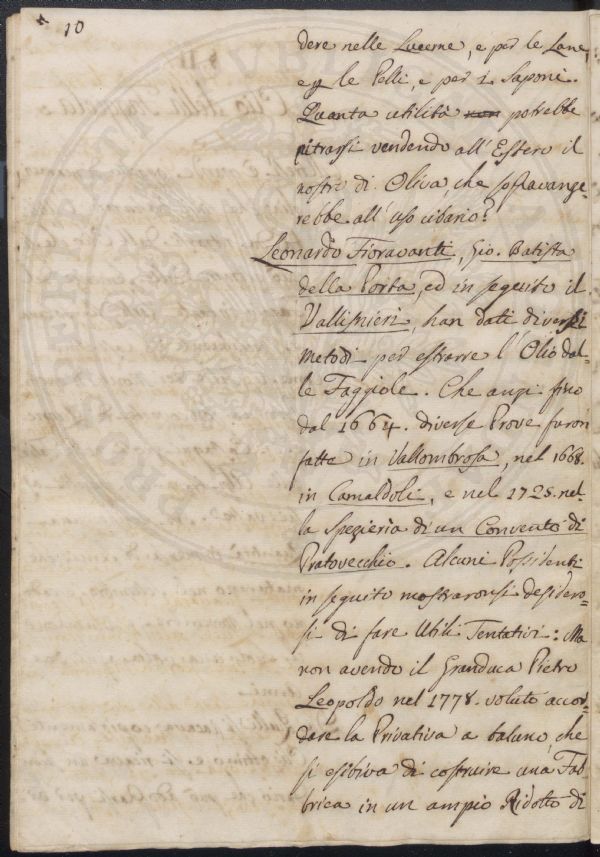 10
dere nelle Lucerne, e per le Lane,
e p le Pelli, e per i Saponi.
Quanta utilità non potrebbe
ritrarsi vendendo all'Estero il
nostro di Oliva, che sopravange-
rebbe all'uso cibario?
Leonardo Fioravanti, Gio. Batista
della Porta, ed in seguito il
Vallisnieri, han dati diversi
metodi per estrarre l'Olio dal-
le Faggiole. Che anzi fino
dal 1664. diverse Prove furon
fatte in Vallombrosa, nel 1668.
in Camaldoli, e nel 1725. nel-
la Spezieria di un Convento di
Pratovecchio. Alcuni Possidenti
in seguito mostraronsi desidero-
si di fare Utili Tentativi: Ma
non avendo il Granduca Pietro
Leopoldo nel 1778. voluto accor-
dare la Privativa a taluno, che
si esibiva di costruire una Fab
brica in un ampio Ridotto di